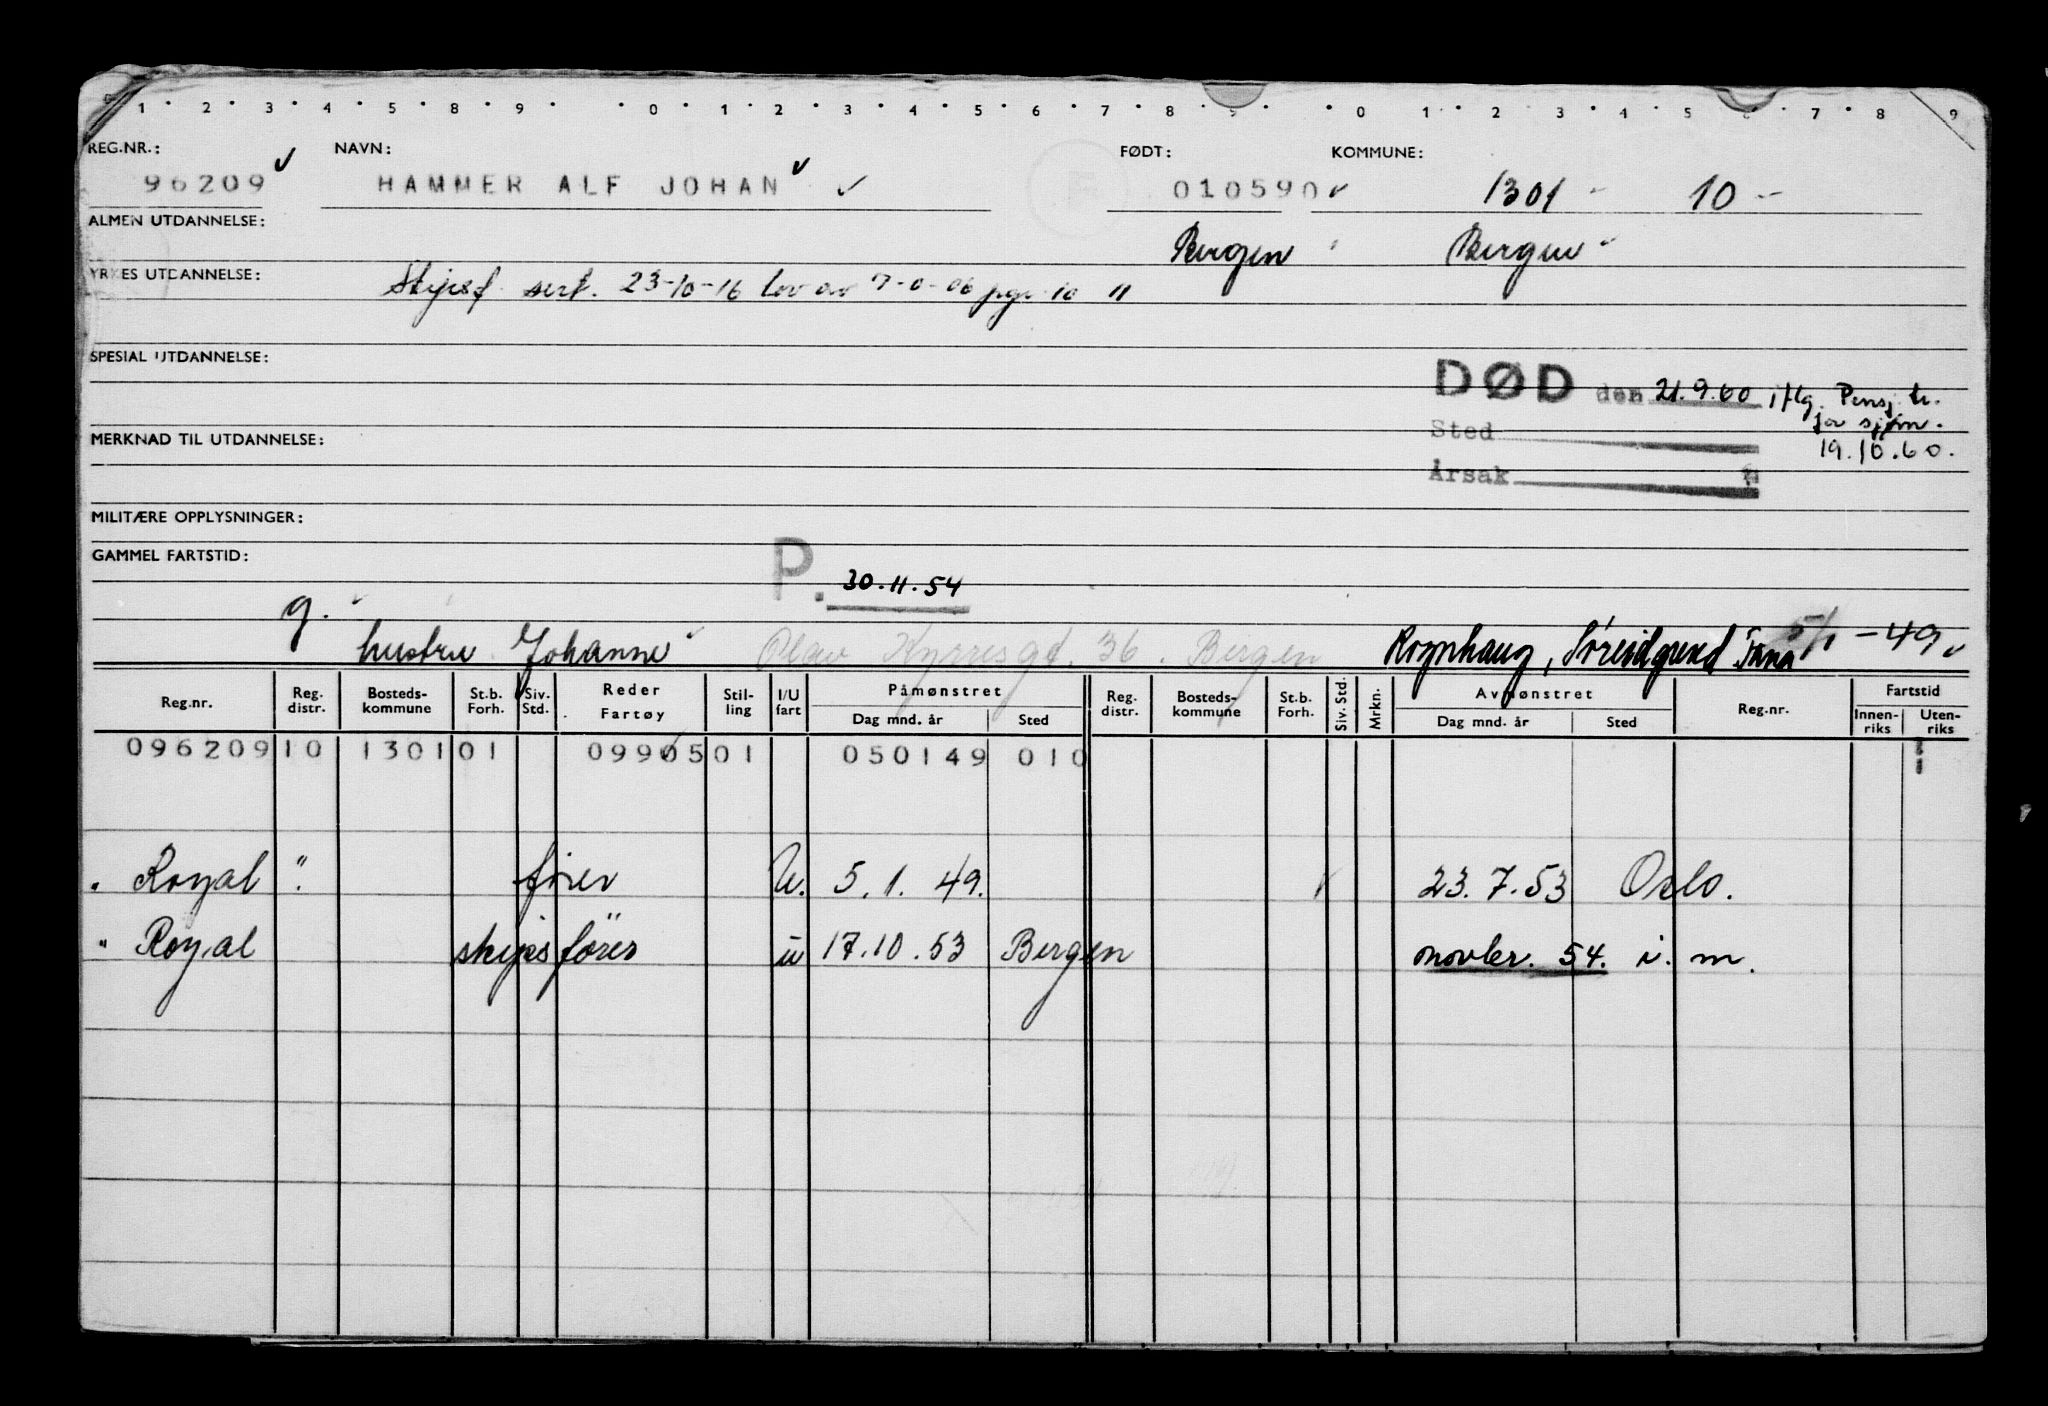 1 · 2 · 3 · 4 · 5 · 8 · 9 · · 0 · 1 · 2 · 3 · 4 · 5 · 6 · 7 · 8 · 9 · · 0 · 1 · 2 · 3 · 4 · 5 · 6 · 7 · 8 · 9
REG.NR.: NAVN: FØDT: KOMMUNE:
96209 HAMMER ALF JOHAN 010590 1301 - 10 -
ALMEN UTDANNELSE:
Bergen Bergen
YRKES UTDANNELSE:
Skipsf. sert. 23-10-16 lov av
SPESIAL UTDANNELSE:
DØD den 21.9.60 iflg. Pensj.tr.
for sjøm.
MERKNAD TIL UTDANNELSE: Sted
19.10.60.
Årsak
MILITÆRE OPPLYSNINGER:
GAMMEL FARTSTID:
P. 30.11.54
g.
hustru Johanne Olav Kyrresgt. 36. Bergen Søreidgrend Fana 5/1 - 49
Reg.nr. Reg. distr. Bosteds-kommune St.b. Forh. Siv. Std. Reder Fartøy Stil-ling I/U fart Påmønstret Dag mnd. år Sted Reg. distr. Bosteds-kommune St.b. Forh. Siv. Std. Mrkn. Avmønstret Dag mnd. år Sted Reg.nr. Fartstid Innen-riks Uten-riks
096209 10 1301 01 09905 01 050149 010
" Royal " fører U. 5.1.49. 23.7.53 Oslo.
" Royal skipsfører u 17.10.53 Bergen novbr. 54. i. m.